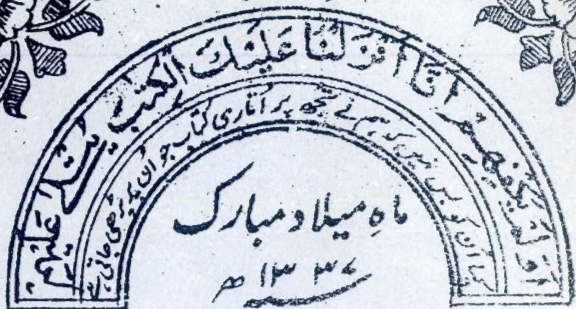 اولم یکفیهم انا انزلنا علیک الکتب یتلی علیهم
کیا ان کو بس نہیں کہ ہم نے تجھ پر اتاری کتاب جو ان پر پڑھی جاتی ہے
ماہِ میلاد مبارک
۱۳۳۷ھ